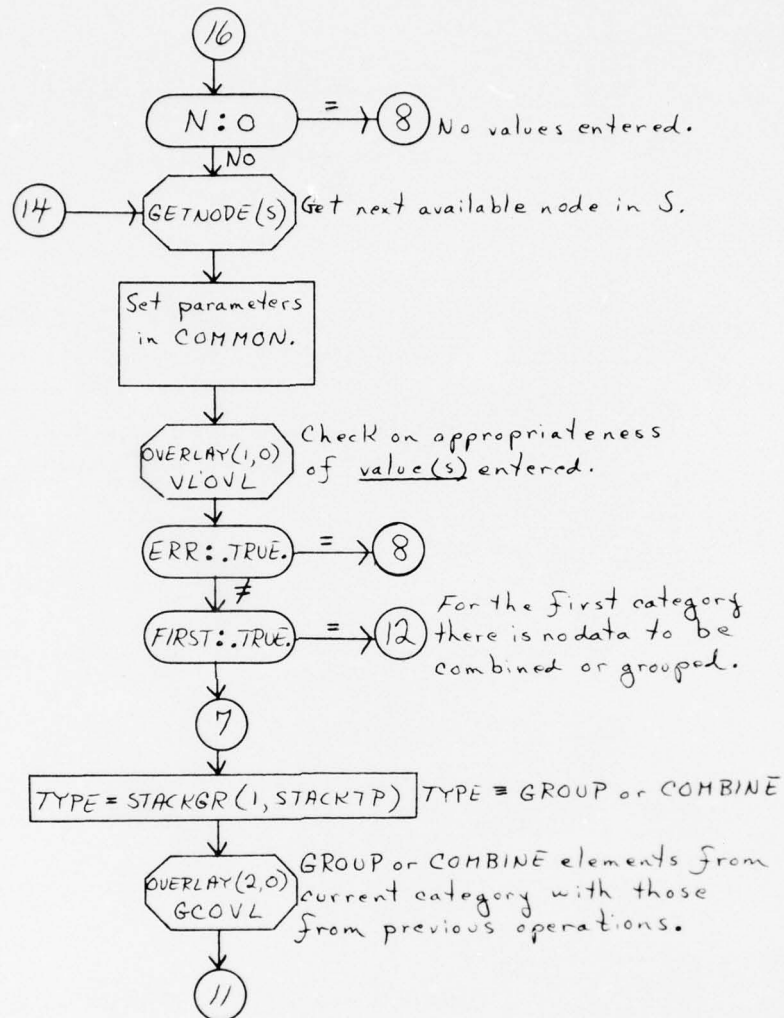 16
N : 0
=
8
No values entered.
NO
14
GETNODE(S)
Get next available node in S.
Set parameters
in COMMON.
OVERLAY(1,0)
VLOVL
Check on appropriateness
of value(s) entered.
ERR: .TRUE.
=
8
≠
FIRST: .TRUE.
=
12
For the first category
there is no data to be
combined or grouped.
7
TYPE = STACKGR(1, STACKTP)
TYPE ≡ GROUP or COMBINE
OVERLAY(2,0)
GCOVL
GROUP or COMBINE elements from
current category with those
from previous operations.
11